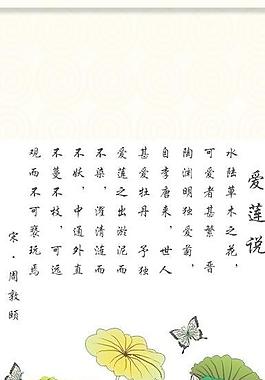 爱莲说
水陆草木之花，
可爱者甚繁 晋
陶渊明独爱菊，
自李唐来，世人
甚爱牡丹 予独
爱莲之出淤泥而
不染，濯清涟而
不妖，中通外直
不蔓不枝，可远
观而不可亵玩焉
宋·周敦颐